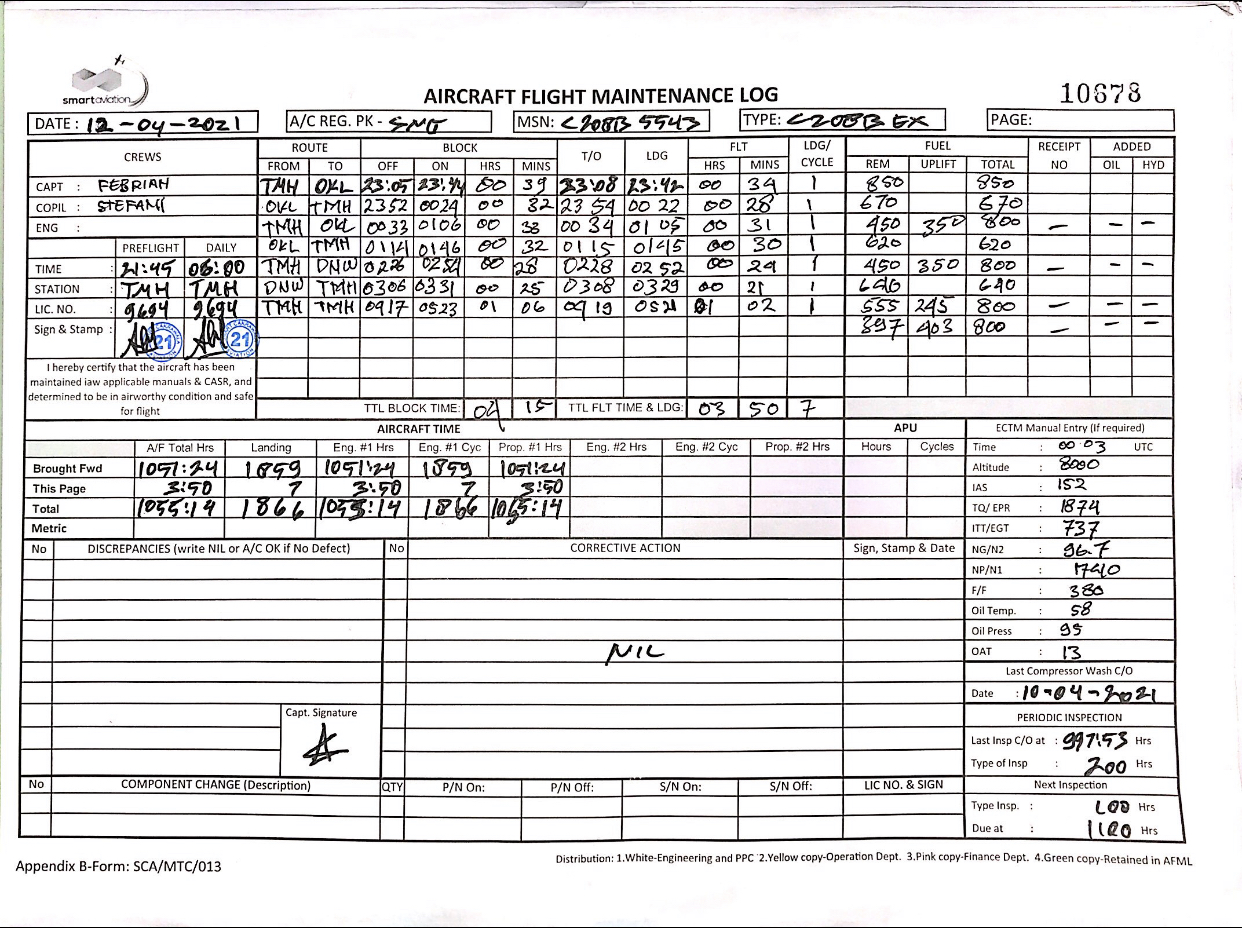 smartaviation
AIRCRAFT FLIGHT MAINTENANCE LOG
10678
DATE : 12-04-2021 A/C REG. PK - SNG MSN: C208B 5543 TYPE: C208B EX PAGE:
CREWS ROUTE BLOCK T/O LDG FLT LDG/ CYCLE FUEL RECEIPT NO ADDED
FROM TO OFF ON HRS MINS HRS MINS REM UPLIFT TOTAL OIL HYD
CAPT : FEBRIAH TMH OKL 23:05 23:44 00 39 23:08 23:42 00 34 1 850 850
COPIL : STEFANI OKL TMH 2352 0024 00 32 23 54 00 22 00 28 1 670 670
ENG : TMH OKL 0033 0106 00 33 00 34 01 05 00 31 1 450 350 800 — — —
PREFLIGHT DAILY OKL TMH 0114 0146 00 32 0115 0145 00 30 1 620 620
TIME : 21:45 06:00 TMH DNW 0226 0254 00 28 0228 02 52 00 24 1 450 350 800 — — —
STATION : TMH TMH DNW TMH 0306 0331 00 25 0308 0329 00 21 1 640 640
LIC. NO. : 9694 9694 TMH TMH 0417 0523 01 06 04 19 0521 01 02 1 555 245 800 — — —
Sign & Stamp : 21 21 397 403 800 — — —
I hereby certify that the aircraft has been
maintained iaw applicable manuals & CASR, and
determined to be in airworthy condition and safe
for flight
TTL BLOCK TIME: 04 15 TTL FLT TIME & LDG: 03 50 7
AIRCRAFT TIME APU ECTM Manual Entry (If required)
A/F Total Hrs Landing Eng. #1 Hrs Eng. #1 Cyc Prop. #1 Hrs Eng. #2 Hrs Eng. #2 Cyc Prop. #2 Hrs Hours Cycles Time : 00 03 UTC
Brought Fwd 1051:24 1859 1051:24 1859 1051:24 Altitude : 8000
This Page 3:50 7 3:50 7 3:50 IAS : 152
Total 1055:14 1866 1055:14 1866 1055:14 TQ/ EPR : 1874
Metric ITT/EGT : 737
No DISCREPANCIES (write NIL or A/C OK if No Defect) No CORRECTIVE ACTION Sign, Stamp & Date NG/N2 : 96.7
NP/N1 : 1740
F/F : 380
Oil Temp. : 58
Oil Press : 95
NIL OAT : 13
Last Compressor Wash C/O
Date : 10-04-2021
Capt. Signature PERIODIC INSPECTION
Last Insp C/O at : 997:53 Hrs
Type of Insp : 200 Hrs
No COMPONENT CHANGE (Description) QTY P/N On: P/N Off: S/N On: S/N Off: LIC NO. & SIGN Next Inspection
Type Insp. : 100 Hrs
Due at : 1100 Hrs
Appendix B-Form: SCA/MTC/013
Distribution: 1.White-Engineering and PPC 2.Yellow copy-Operation Dept. 3.Pink copy-Finance Dept. 4.Green copy-Retained in AFML